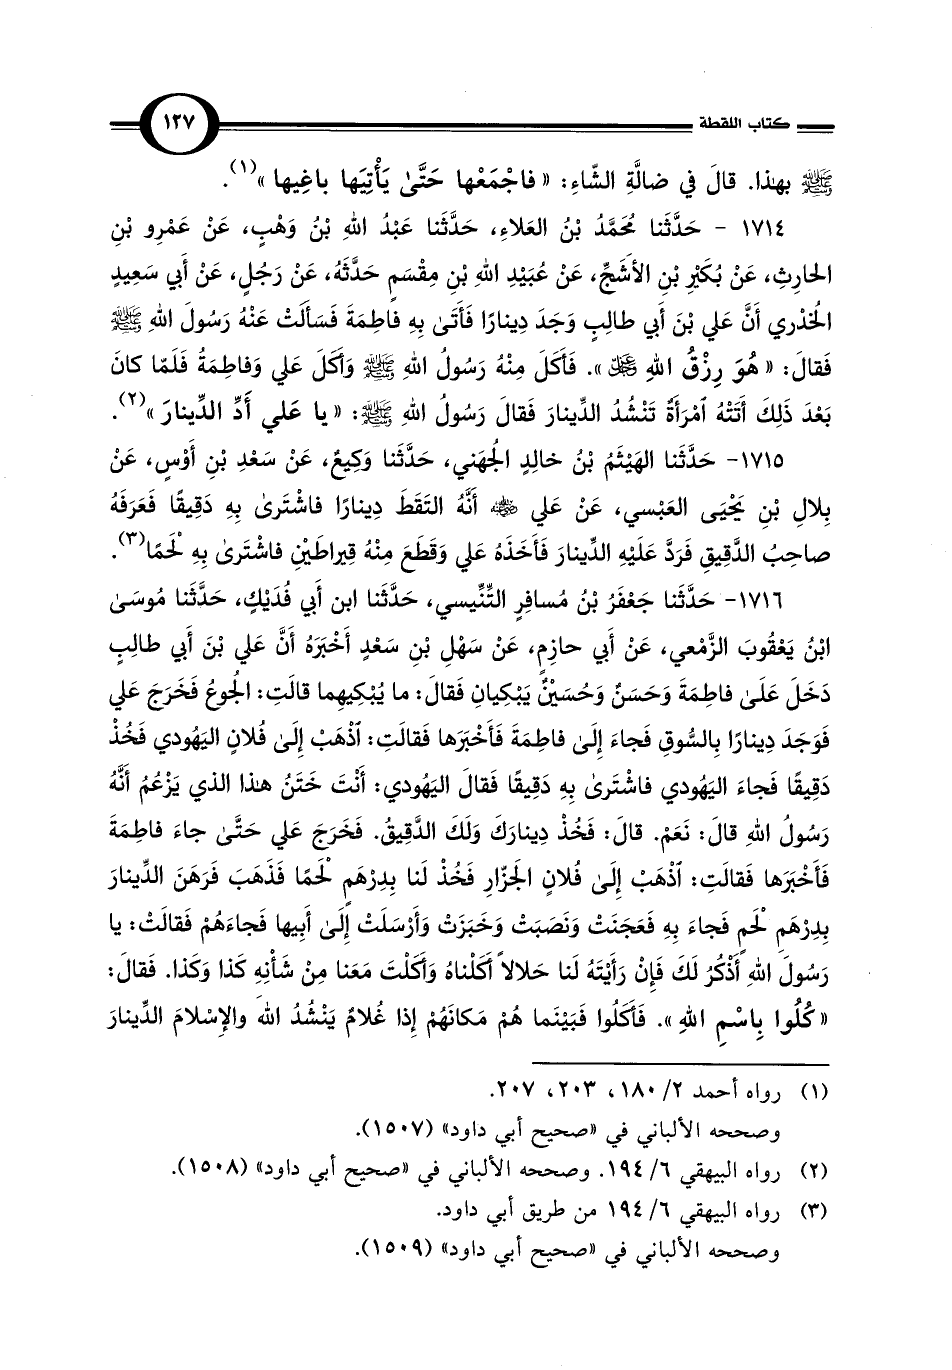 كتاب اللقطة ١٢٧
ﷺ بهٰذا. قالَ في ضالَّةِ الشّاءِ: « فاجْمَعْها حَتَّىٰ يَأْتِيَها باغِيها »(١).
١٧١٤ - حَدَّثَنا مُحَمَّدُ بْنُ العَلاءِ، حَدَّثَنا عَبْدُ اللهِ بْنُ وَهْبٍ، عَنْ عَمْرِو بْنِ
الحارِثِ، عَنْ بُكَيْرِ بْنِ الأَشَجِّ، عَنْ عُبَيْدِ اللهِ بْنِ مِقْسَمٍ حَدَّثَهُ، عَنْ رَجُلٍ، عَنْ أَبي سَعِيدٍ
الخُدْري أَنَّ عَلي بْنَ أَبي طالِبٍ وَجَدَ دِينارًا فَأَتَىٰ بِهِ فاطِمَةَ فَسَأَلَتْ عَنْهُ رَسُولَ اللهِ ﷺ
فَقالَ: « هُوَ رِزْقُ اللهِ ﷻ ». فَأَكَلَ مِنْهُ رَسُولُ اللهِ ﷺ وَأَكَلَ عَلي وَفاطِمَةُ فَلَمّا كانَ
بَعْدَ ذَلِكَ أَتَتْهُ ٱمْرَأَةٌ تَنْشُدُ الدِّينارَ فَقالَ رَسُولُ اللهِ ﷺ: « يا عَلي أَدِّ الدِّينارَ »(٢).
١٧١٥- حَدَّثَنا الهَيْثَمُ بْنُ خالِدٍ الجُهَني، حَدَّثَنا وَكِيعٌ، عَنْ سَعْدِ بْنِ أَوْسٍ، عَنْ
بِلالِ بْنِ يَحْيَى العَبْسي، عَنْ عَلي رضي الله عنه أَنَّهُ التَقَطَ دِينارًا فاشْتَرىٰ بِهِ دَقِيقًا فَعَرَفَهُ
صاحِبُ الدَّقِيقِ فَرَدَّ عَلَيْهِ الدِّينارَ فَأَخَذَهُ عَلي وَقَطَعَ مِنْهُ قِيراطَيْنِ فاشْتَرىٰ بِهِ لَحْمًا(٣).
١٧١٦- حَدَّثَنا جَعْفَرُ بْنُ مُسافِرٍ التِّنِّيسي، حَدَّثَنا ابن أَبي فُدَيْكٍ، حَدَّثَنا مُوسَىٰ
ابْنُ يَعْقُوبَ الزَّمْعي، عَنْ أَبي حازِمٍ، عَنْ سَهْلِ بْنِ سَعْدٍ أَخْبَرَهُ أَنَّ عَلي بْنَ أَبي طالِبٍ
دَخَلَ عَلَىٰ فاطِمَةَ وَحَسَنٌ وَحُسَيْنٌ يَبْكِيانِ فَقالَ: ما يُبْكِيهِما قالَتِ: الجُوعُ فَخَرَجَ عَلي
فَوَجَدَ دِينارًا بِالسُّوقِ فَجاءَ إِلَىٰ فاطِمَةَ فَأَخْبَرَها فَقالَتِ: ٱذْهَبْ إِلَىٰ فُلانٍ اليَهُودي فَخُذْ
دَقِيقًا فَجاءَ اليَهُودي فاشْتَرىٰ بِهِ دَقِيقًا فَقالَ اليَهُودي: أَنْتَ خَتَنُ هٰذا الذي يَزْعُمُ أَنَّهُ
رَسُولُ اللهِ قالَ: نَعَمْ. قالَ: فَخُذْ دِينارَكَ وَلَكَ الدَّقِيقُ. فَخَرَجَ عَلي حَتَّىٰ جاءَ فاطِمَةَ
فَأَخْبَرَها فَقالَتِ: ٱذْهَبْ إِلَىٰ فُلانٍ الجَزّارِ فَخُذْ لَنا بِدِرْهَمٍ لَحْمًا فَذَهَبَ فَرَهَنَ الدِّينارَ
بِدِرْهَمِ لَحْمٍ فَجاءَ بِهِ فَعَجَنَتْ وَنَصَبَتْ وَخَبَزَتْ وَأَرْسَلَتْ إِلَىٰ أَبِيها فَجاءَهُمْ فَقالَتْ: يا
رَسُولَ اللهِ أَذْكُرُ لَكَ فَإِنْ رَأَيْتَهُ لَنا حَلالاً أَكَلْناهُ وَأَكَلْتَ مَعَنا مِنْ شَأْنِهِ كَذا وَكَذا. فَقالَ:
« كُلُوا بِاسْمِ اللهِ ». فَأَكَلُوا فَبَيْنَما هُمْ مَكانَهُمْ إِذا غُلامٌ يَنْشُدُ اللهَ والإِسْلامَ الدِّينارَ
(١) رواه أحمد ٢/ ١٨٠، ٢٠٣، ٢٠٧.
وصححه الألباني في «صحيح أبي داود» (١٥٠٧).
(٢) رواه البيهقي ٦/ ١٩٤. وصححه الألباني في «صحيح أبي داود» (١٥٠٨).
(٣) رواه البيهقي ٦/ ١٩٤ من طريق أبي داود.
وصححه الألباني في «صحيح أبي داود» (١٥٠٩).